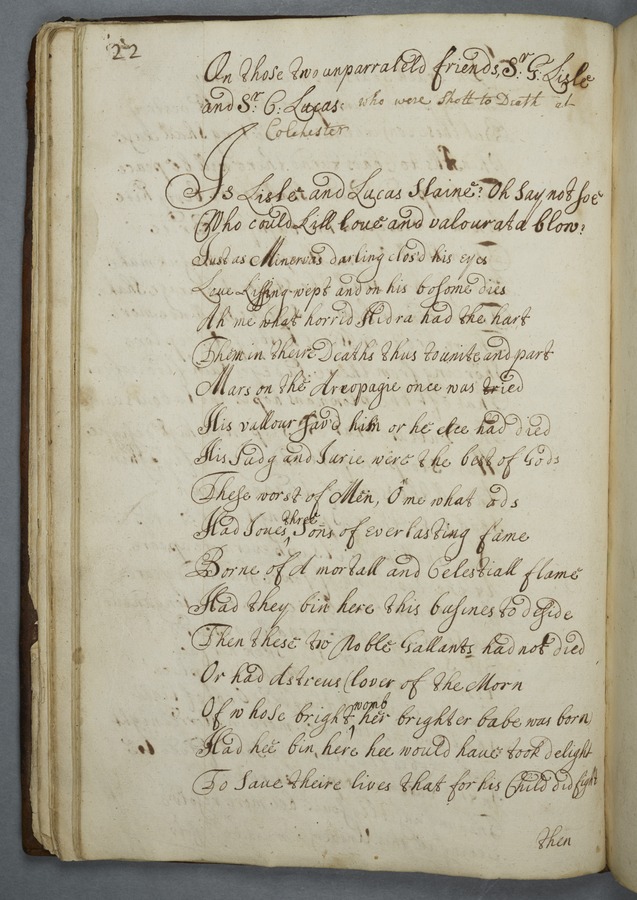 22
On those two unparraleld friends, Sr: G: Lisle
and Sr: C: Lucas: who were Shott to Death at
Colchester
Is Lisle and Lucas Slaine? Oh Say not soe
Who could kill love and valour at a blow?
Just as Minervas darling clos'd his eyes
Love kissing wept and on his bosome dies
Ah me what horrid Hidra had the hart
Them in theire Deaths thus to unite and part
Mars on the Areopagie once was tried
His vallour Sav'd him or he elce had died
His Judg and Jurie were the best of Gods
These worst of Men, O me what ods
Had Joves three Sons of everlasting fame
Borne of A mortall and Celestiall flame
Had they bin here this busines to deside
Then these two Noble Gallants had not died
Or had Astreus (lover of the Morn
Of whose bright womb her brighter babe was born)
Had hee bin here hee would have took delight
To Save theire lives that for his Child did fight
then